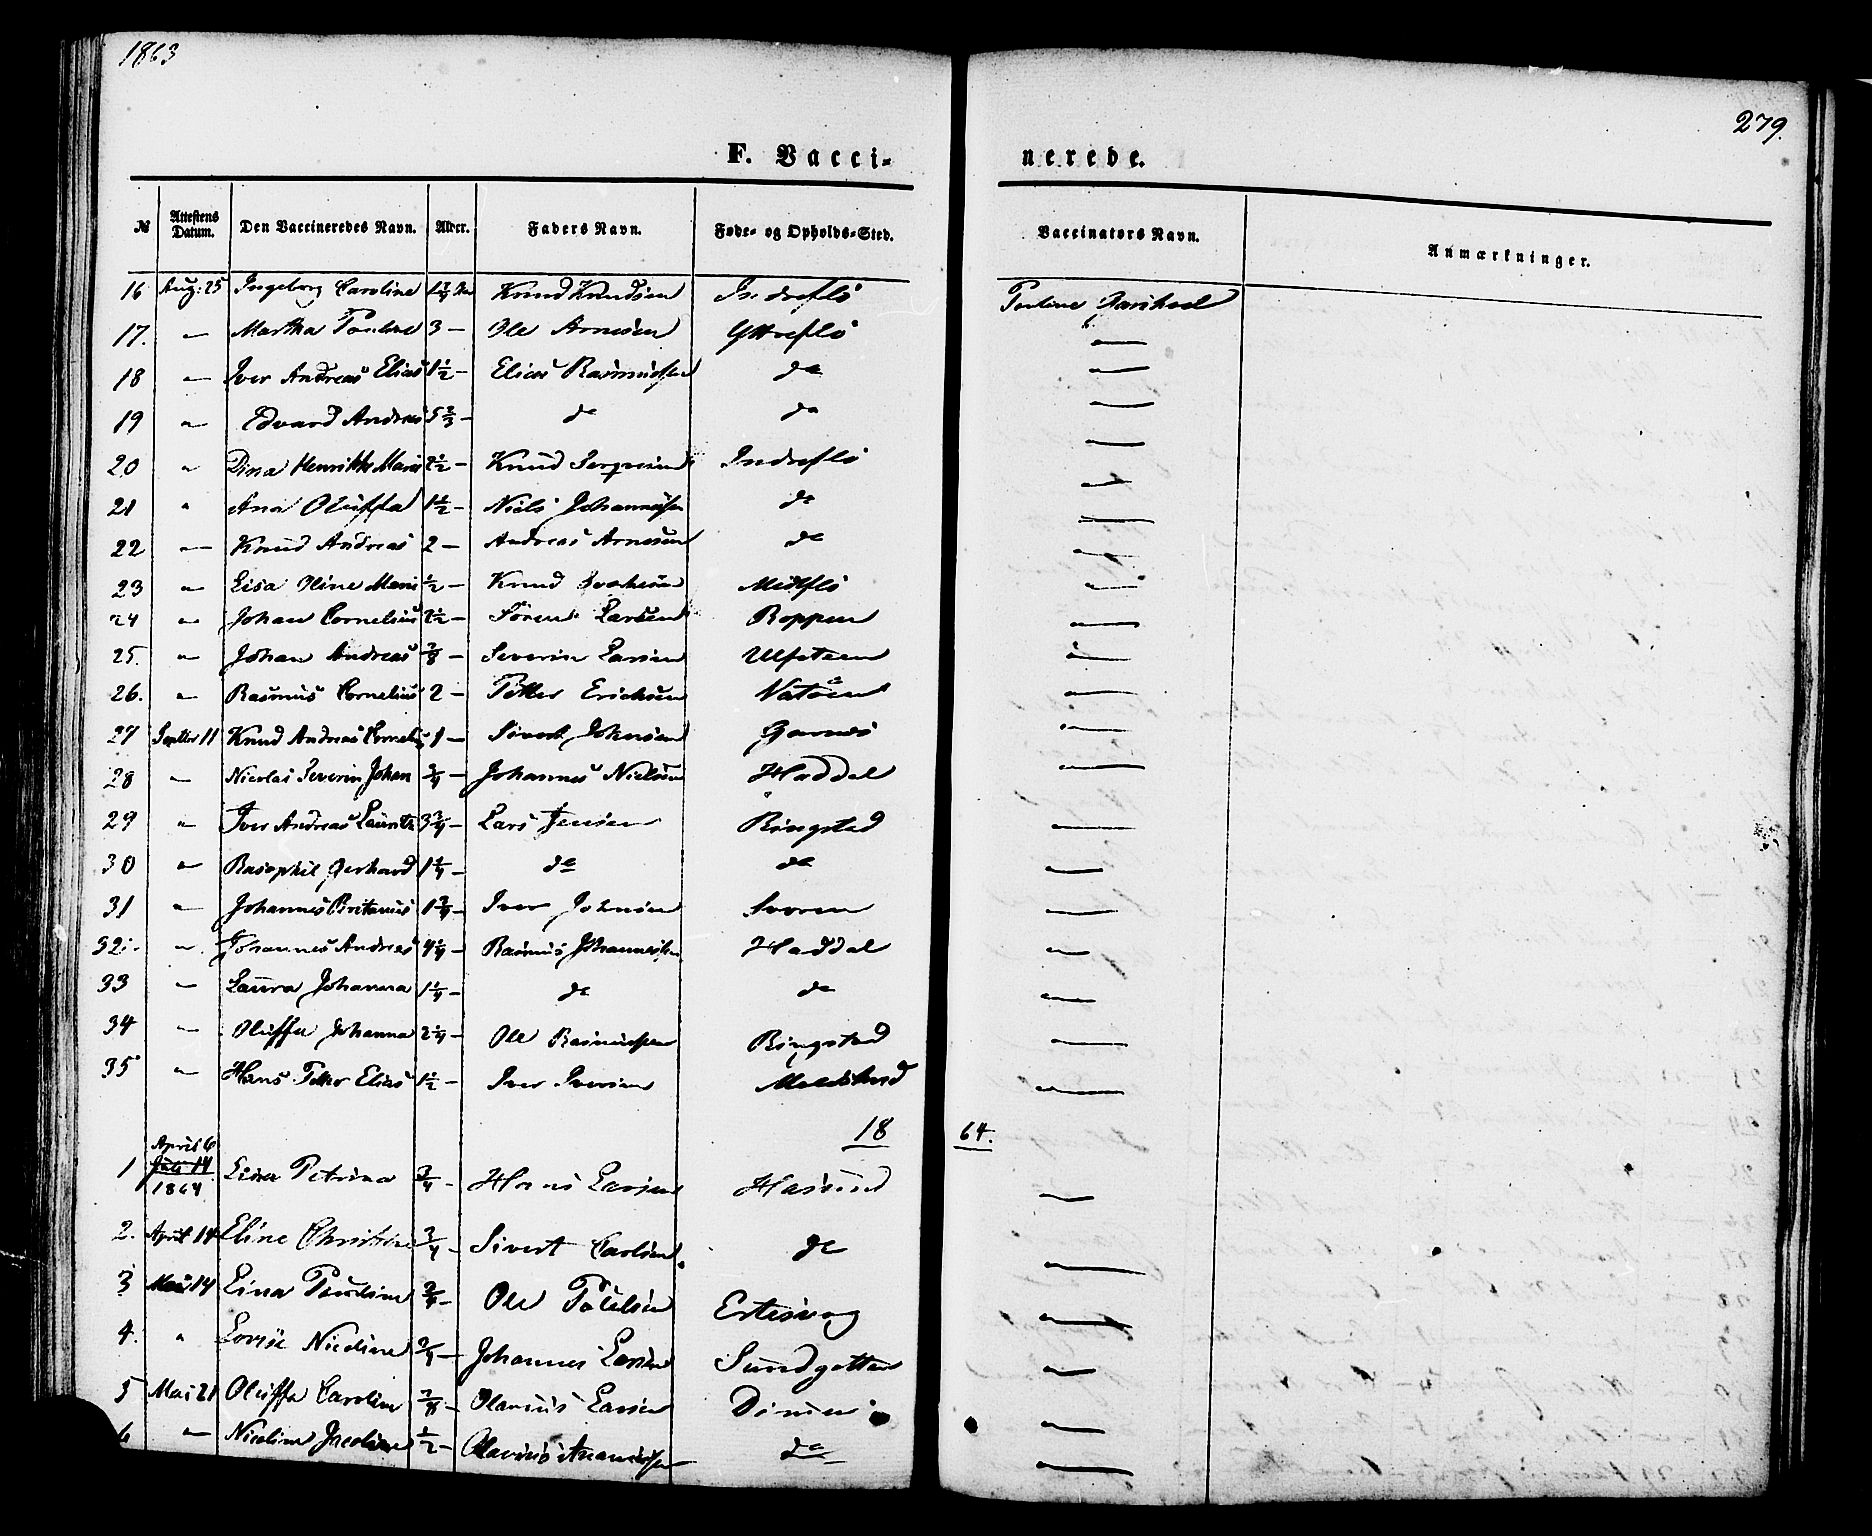 1863
279.
F. Vaccinerede.
№ Attestens Datum. Den Vaccineredes Navn. Alder. Faders Navn. Føde- og Opholds-Sted. Vaccinators Navn. Anmærkninger.
16 Aug: 25 Ingeborg Caroline Knud Knudsen Indreflø Pauline
17. " Martha Pauline 3 – Ole Arnesen Ytreflø —
18 " Iver Andreas Elias 1½ – Elias Rasmussen do —
19 " Edvard Andreas 5⅔ – do do —
20 " Dina Henrikke Marie 2½ – Knud Indreflø —
21 " Ana Oluffa 1½ – Niels Johannessen do —
22 " Knud Andreas 2 – Andreas Arnesen do —
23 " Lisa Oline Marie ½ – Knud Midtflø —
24 " Johan Cornelius 2½ – Søren Larsen Roppen —
25. " Johan Andreas ⅞ – Severin Larsen Ulfsteen —
26. " Rasmus Cornelius 2 – Petter Ericksen Vatöen —
27 Septbr 11 Knud Andreas Cornelius 1 – Sivert Johnsen Garnes —
28 " Nicolai Severin Johan ¾ – Johannes Nielsen Haddal —
29 " Iver Andreas Lauritz 3¾ – Lars Jensen Ringstad —
30 " Gerhard 1¼ – do do —
31 " Johannes 1¾ – Iver Johnsen —
32. " Johannes Andreas 4¼ – Rasmus Johannessen Haddal —
33 " Laura Johanna 1¼ – do do —
34 " Oluffa Johanna 2¼ – Ole Rasmussen Ringstad —
35 " Hans Petter Elias 1½ – Iver Iversen —
1864.
1 April 6 1864 Petrina ¾ – Hans Larsen Hasund —
2. April 14 Eline Christine ¾ – Sivert Carlsen do —
3 Mai 14 Lina Pauline ¾ – Ole Paulsen Ertesvag —
4. " Lovise Nicoline ¾ – Johannes Larsen Sundgotten —
5 Mai 21 Oluffa Caroline ⅞ – Olarius Larsen —
6 " Nicoline Jacobine ½ – Olarius do —